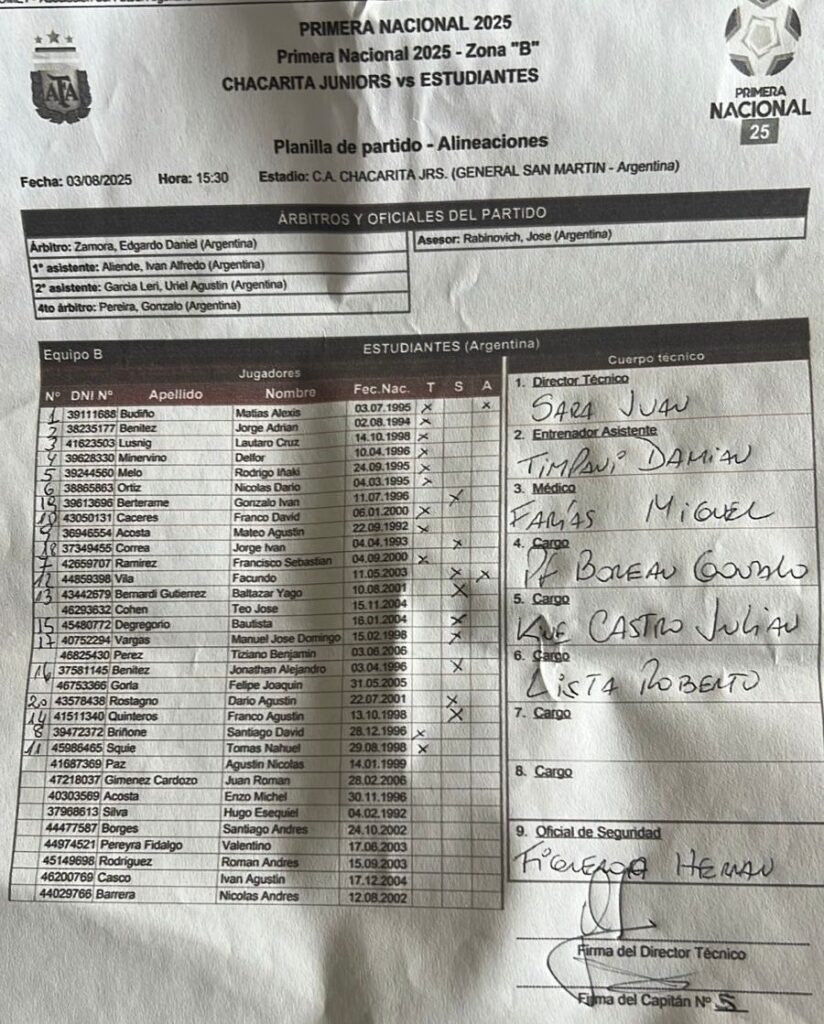 PRIMERA NACIONAL 2025
Primera Nacional 2025 - Zona "B"
CHACARITA JUNIORS vs ESTUDIANTES
AFA
PRIMERA
NACIONAL
25
Planilla de partido - Alineaciones
Fecha: 03/08/2025 Hora: 15:30 Estadio: C.A. CHACARITA JRS. (GENERAL SAN MARTIN - Argentina)
ÁRBITROS Y OFICIALES DEL PARTIDO
Árbitro: Zamora, Edgardo Daniel (Argentina)
Asesor: Rabinovich, Jose (Argentina)
1º asistente: Aliende, Ivan Alfredo (Argentina)
2º asistente: Garcia Leri, Uriel Agustin (Argentina)
4to árbitro: Pereira, Gonzalo (Argentina)
Equipo B ESTUDIANTES (Argentina)
Jugadores
Nº DNI Nº Apellido Nombre Fec.Nac. T S A
1 39111688 Budiño Matias Alexis 03.07.1995 x x
2 38235177 Benitez Jorge Adrian 02.08.1994 x
3 41623503 Lusnig Lautaro Cruz 14.10.1998 x
4 39628330 Minervino Delfor 10.04.1996 x
5 39244560 Melo Rodrigo Iñaki 24.09.1995 x
6 38865863 Ortiz Nicolas Dario 04.03.1995 x
19 39613696 Berterame Gonzalo Ivan 11.07.1996 x
10 43050131 Caceres Franco David 06.01.2000 x
9 36946554 Acosta Mateo Agustin 22.09.1992 x
18 37349455 Correa Jorge Ivan 04.04.1993 x
7 42659707 Ramirez Francisco Sebastian 04.09.2000 x
12 44859398 Vila Facundo 11.05.2003 x x
13 43442679 Bernardi Gutierrez Baltazar Yago 10.08.2001 x
46293632 Cohen Teo Jose 15.11.2004
15 45480772 Degregorio Bautista 16.01.2004 x
17 40752294 Vargas Manuel Jose Domingo 15.02.1998 x
46825430 Perez Tiziano Benjamin 03.06.2006
16 37581145 Benitez Jonathan Alejandro 03.04.1996 x
46753366 Gorla Felipe Joaquin 31.05.2005
20 43578438 Rostagno Dario Agustin 22.07.2001 x
14 41511340 Quinteros Franco Agustin 13.10.1998 x
8 39472372 Briñone Santiago David 28.12.1996 x
11 45986465 Squie Tomas Nahuel 29.08.1998 x
41687369 Paz Agustin Nicolas 14.01.1999
47218037 Gimenez Cardozo Juan Roman 28.02.2006
40303569 Acosta Enzo Michel 30.11.1996
37968613 Silva Hugo Esequiel 04.02.1992
44477587 Borges Santiago Andres 24.10.2002
44974521 Pereyra Fidalgo Valentino 17.06.2003
45149698 Rodriguez Roman Andres 15.09.2003
46200769 Casco Ivan Agustin 17.12.2004
44029766 Barrera Nicolas Andres 12.08.2002
Cuerpo técnico
1. Director Técnico
SARA JUAN
2. Entrenador Asistente
TIMPANI DAMIAN
3. Médico
FARÍAS MIGUEL
4. Cargo
PF BOREAU GONZALO
5. Cargo
KNE CASTRO JULIAN
6. Cargo
LISTA ROBERTO
7. Cargo
8. Cargo
9. Oficial de Seguridad
FIGUEROA HERNAN
Firma del Director Técnico
Firma del Capitán Nº 5